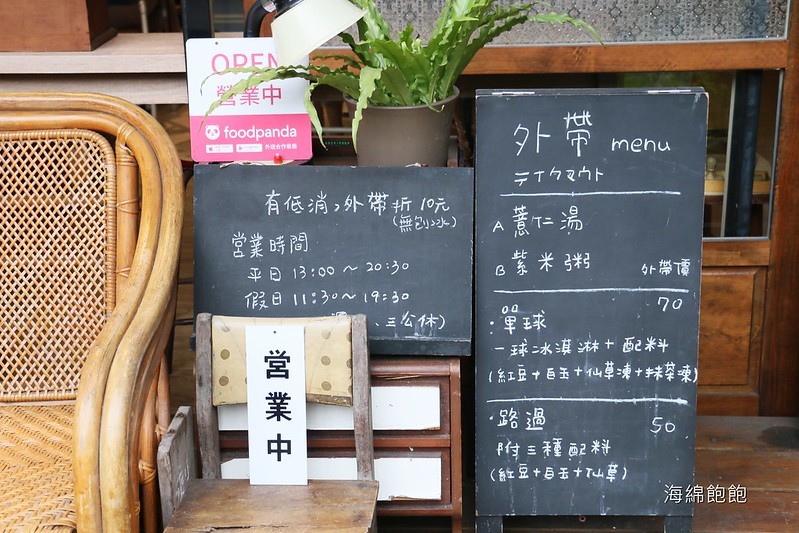 OPEN
營業中
foodpanda
外送合作餐廳
有低消,外帶折10元
(無刨冰)
營業時間
平日 13:00～20:30
假日 11:30～19:30
、三公休)
營業中
外帶 menu
テイクアウト
A 薏仁湯
B 紫米粥 外帶價
70
·單球
一球冰淇淋+配料
(紅豆+白玉+仙草凍+抹茶凍)
·路過 50
附三種配料
(紅豆+白玉+仙草)
海綿飽飽